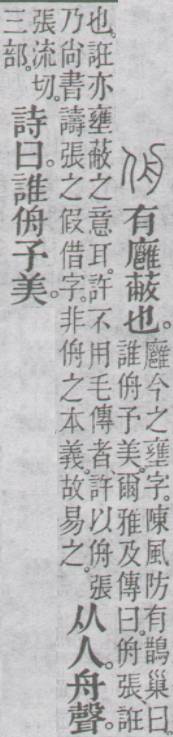 侜 有廱蔽也。
廱今之壅字。陳風防有鵲巢曰。
誰侜予美。爾雅及傳曰。侜張、誑
也。誑亦壅蔽之意耳。許不用毛傳者、許以侜張
乃尙書譸張之假借字。非侜之本義。故易之。
从人。舟聲。
張流切。
三部。
詩曰。誰侜予美。